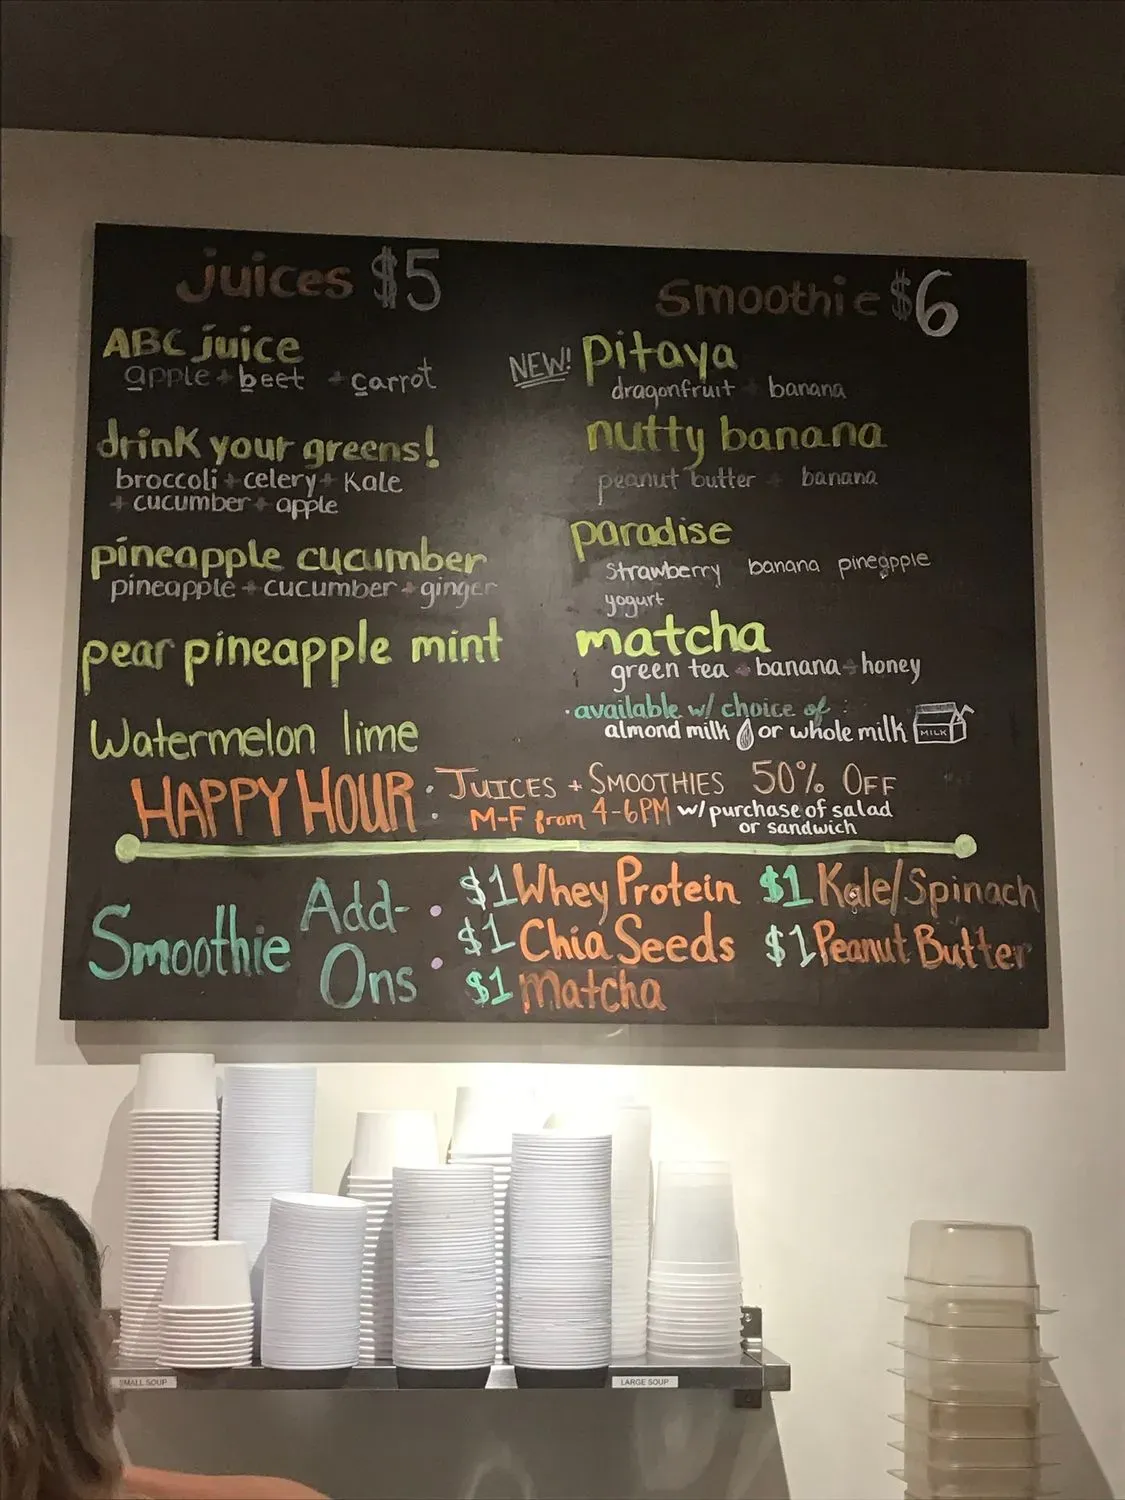 juices $5
ABC juice
apple + beet + carrot
drink your greens!
broccoli + celery + Kale
+ cucumber + apple
pineapple cucumber
pineapple + cucumber + ginger
pear pineapple mint
Watermelon lime
Smoothie $6
NEW! pitaya
dragonfruit + banana
nutty banana
peanut butter + banana
paradise
strawberry banana pineapple
yogurt
matcha
green tea + banana + honey
· available w/ choice of :
almond milk or whole milk
MILK
HAPPY HOUR · JUICES + SMOOTHIES 50% OFF
· M-F from 4-6PM w/ purchase of salad
or sandwich
Smoothie Add-Ons
· $1 Whey Protein $1 Kale/Spinach
$1 Chia Seeds $1 Peanut Butter
· $1 Matcha
SMALL SOUP
LARGE SOUP